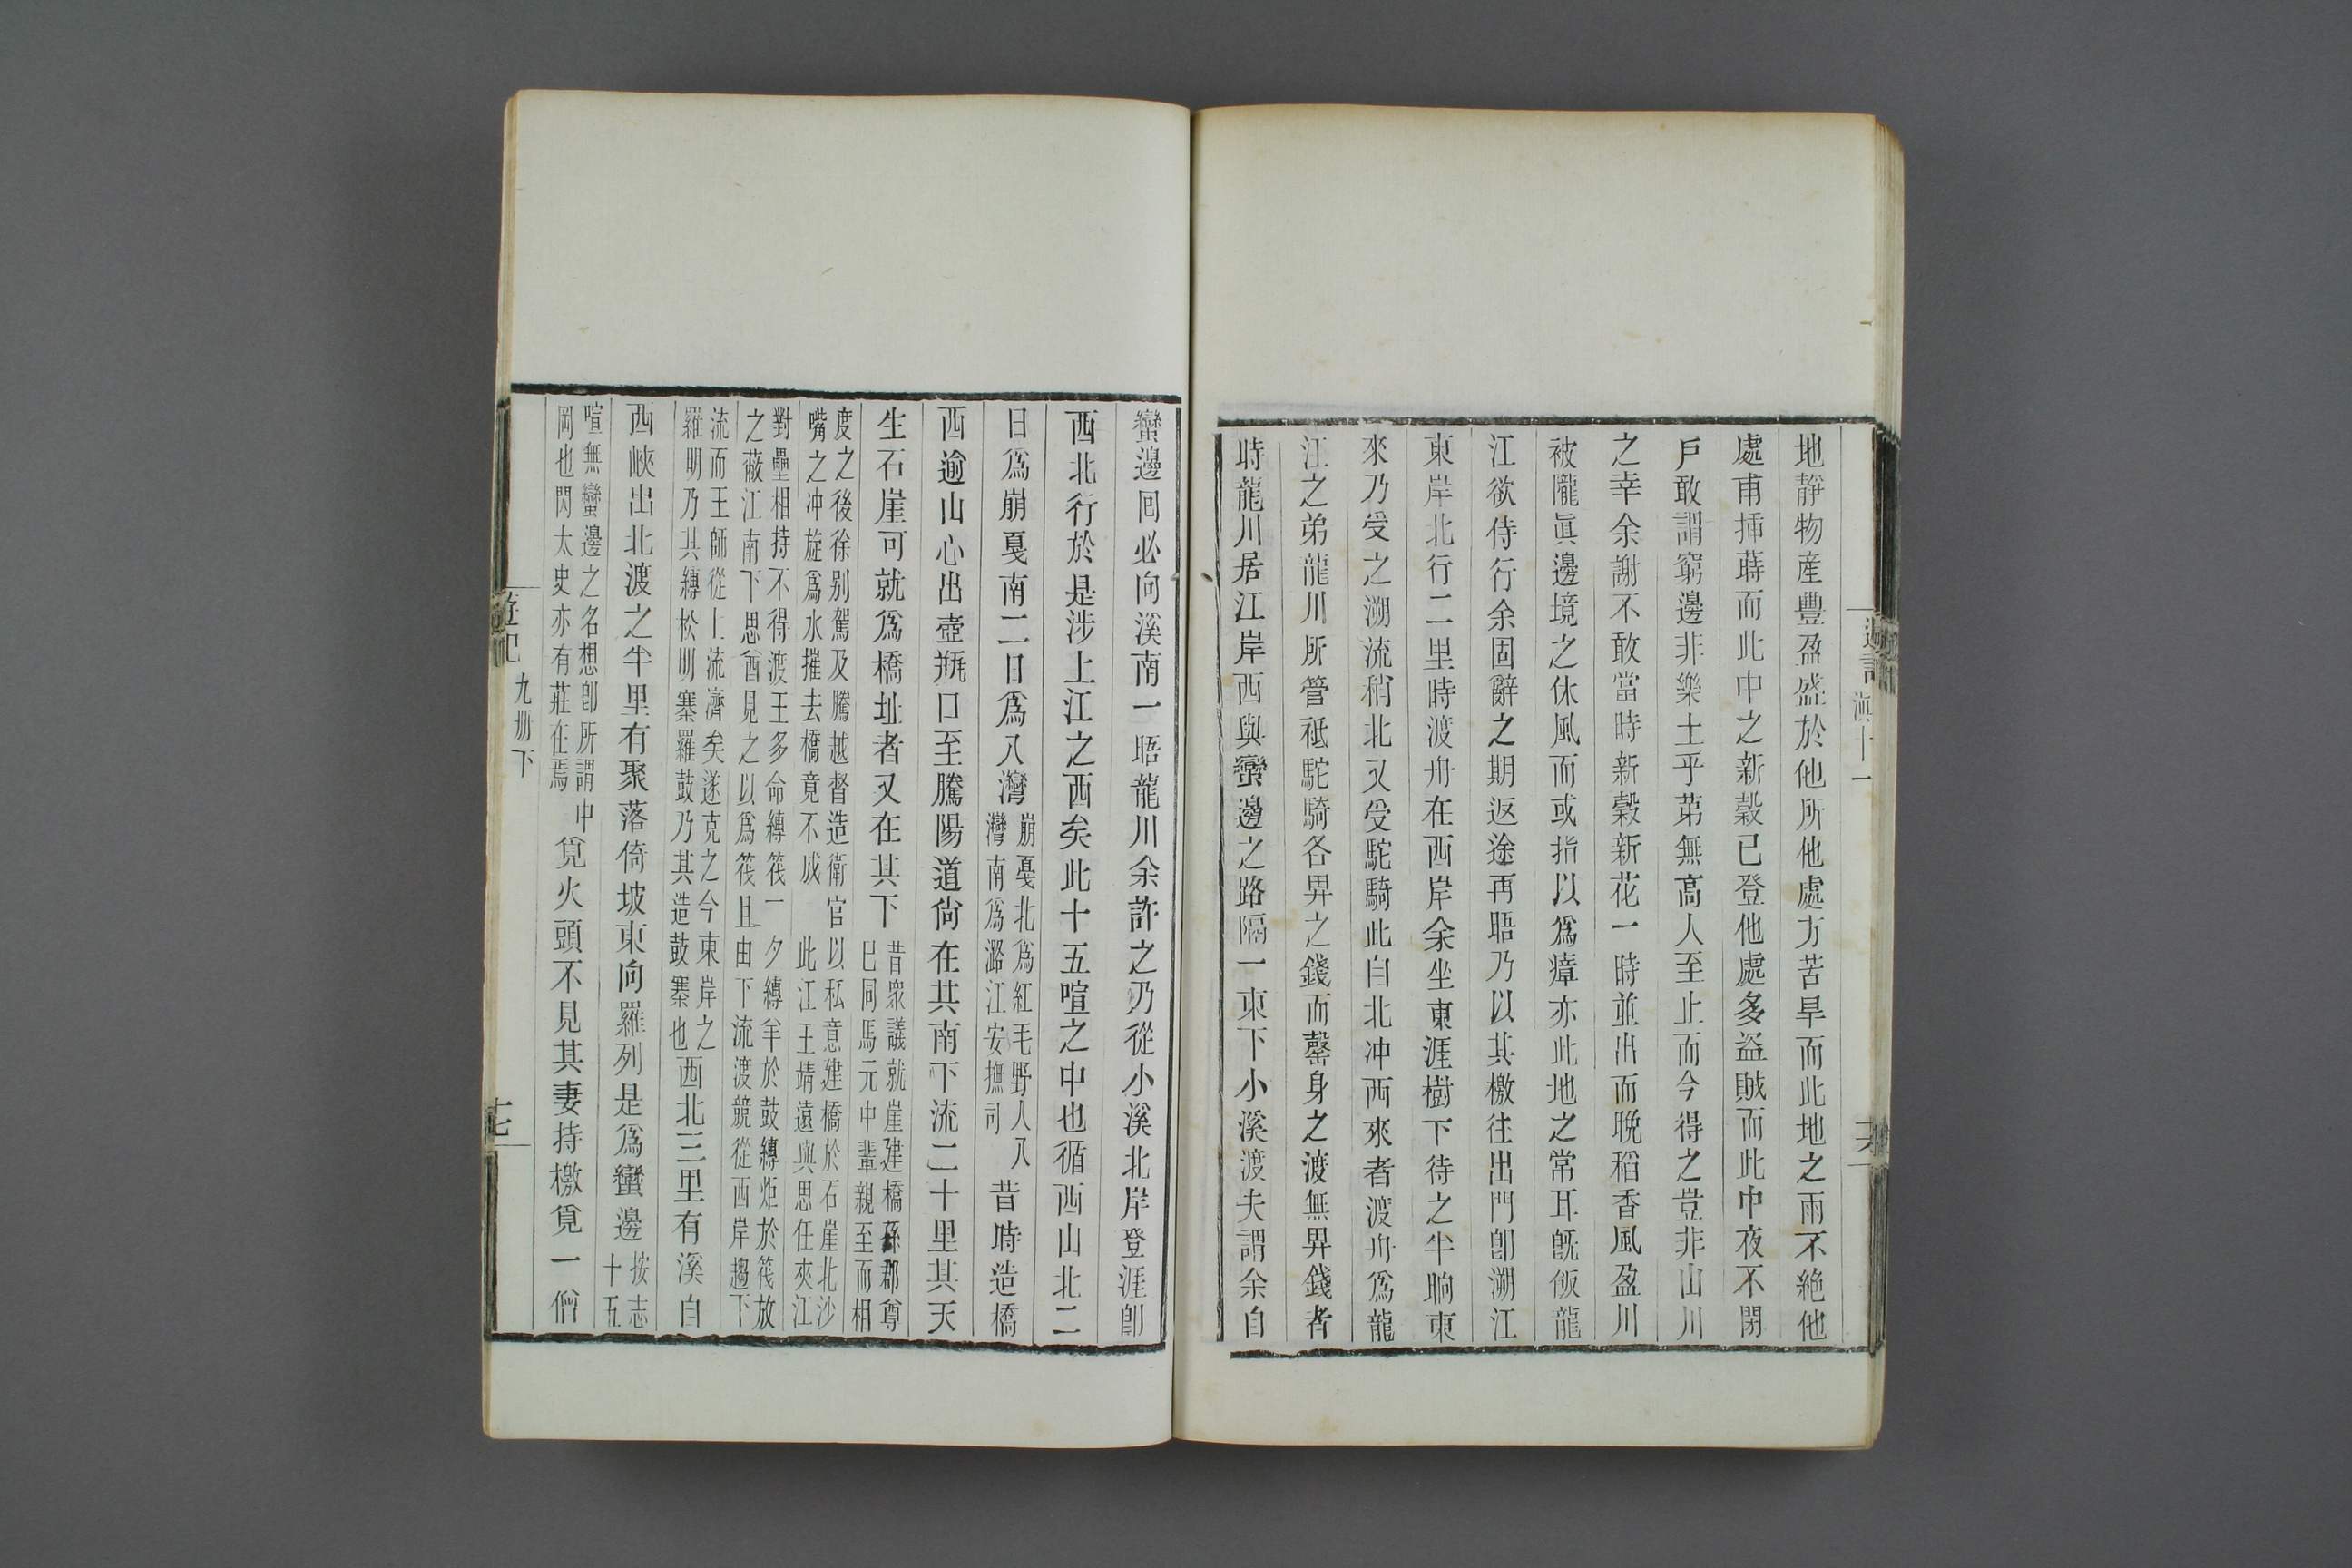 地靜物産豐盈盛於他所他處方苦旱而此地之雨不絶他
處甫揷蒔而此中之新穀已登他處多盜賊而此中夜不閉
戶敢謂窮邊非樂土乎苐無高人至止而今得之豈非山川
之幸余謝不敢當時新穀新花一時並出而晚稻香風盈川
被隴眞邊境之休風而或指以爲瘴亦此地之常耳旣飯龍
江欲侍行余固辭之期返途再晤乃以其檄往出門卽溯江
東岸北行二里時渡舟在西岸余坐東涯樹下待之半晌東
來乃受之溯流稍北又受駝騎此自北冲西來者渡舟爲龍
江之弟龍川所管祗駝騎各畀之錢而罄身之渡無畀錢者
時龍川居江岸西與蠻邊之路隔一東下小溪渡夫謂余自
遊記
滇十一
蠻邊回必向溪南一晤龍川余許之乃從小溪北岸登涯卽
西北行於是涉上江之西矣此十五喧之中也循西山北二
日爲崩戛南二日爲八灣
崩戛北爲紅毛野人八
灣南爲潞江安撫司
昔時造橋
西逾山心出壺瓶口至騰陽道尙在其南下流二十里其天
生石崖可就爲橋址者又在其下
昔衆議就崖建橋孫郡尊
巳同馬元中輩親至而相
度之後徐别駕及騰越督造衛官以私意建橋於石崖北沙
嘴之冲旋爲水摧去橋竟不成　此江王靖遠與思任夾江
對壘相持不得渡王多命縛筏一夕縛羊於鼓縛炬於筏放
之蔽江南下思酋見之以爲筏且由下流渡競從西岸趨下
流而王師從上流濟矣遂克之今東岸之
羅明乃其縛松明寨羅鼓乃其造鼓寨也
西北三里有溪自
西峽出北渡之半里有聚落倚坡東向羅列是爲蠻邊
按志
十五
喧無蠻邊之名想卽所謂中
岡也閃太史亦有莊在焉
覓火頭不見其妻持檄覓一僧
遊記
九册下
十七